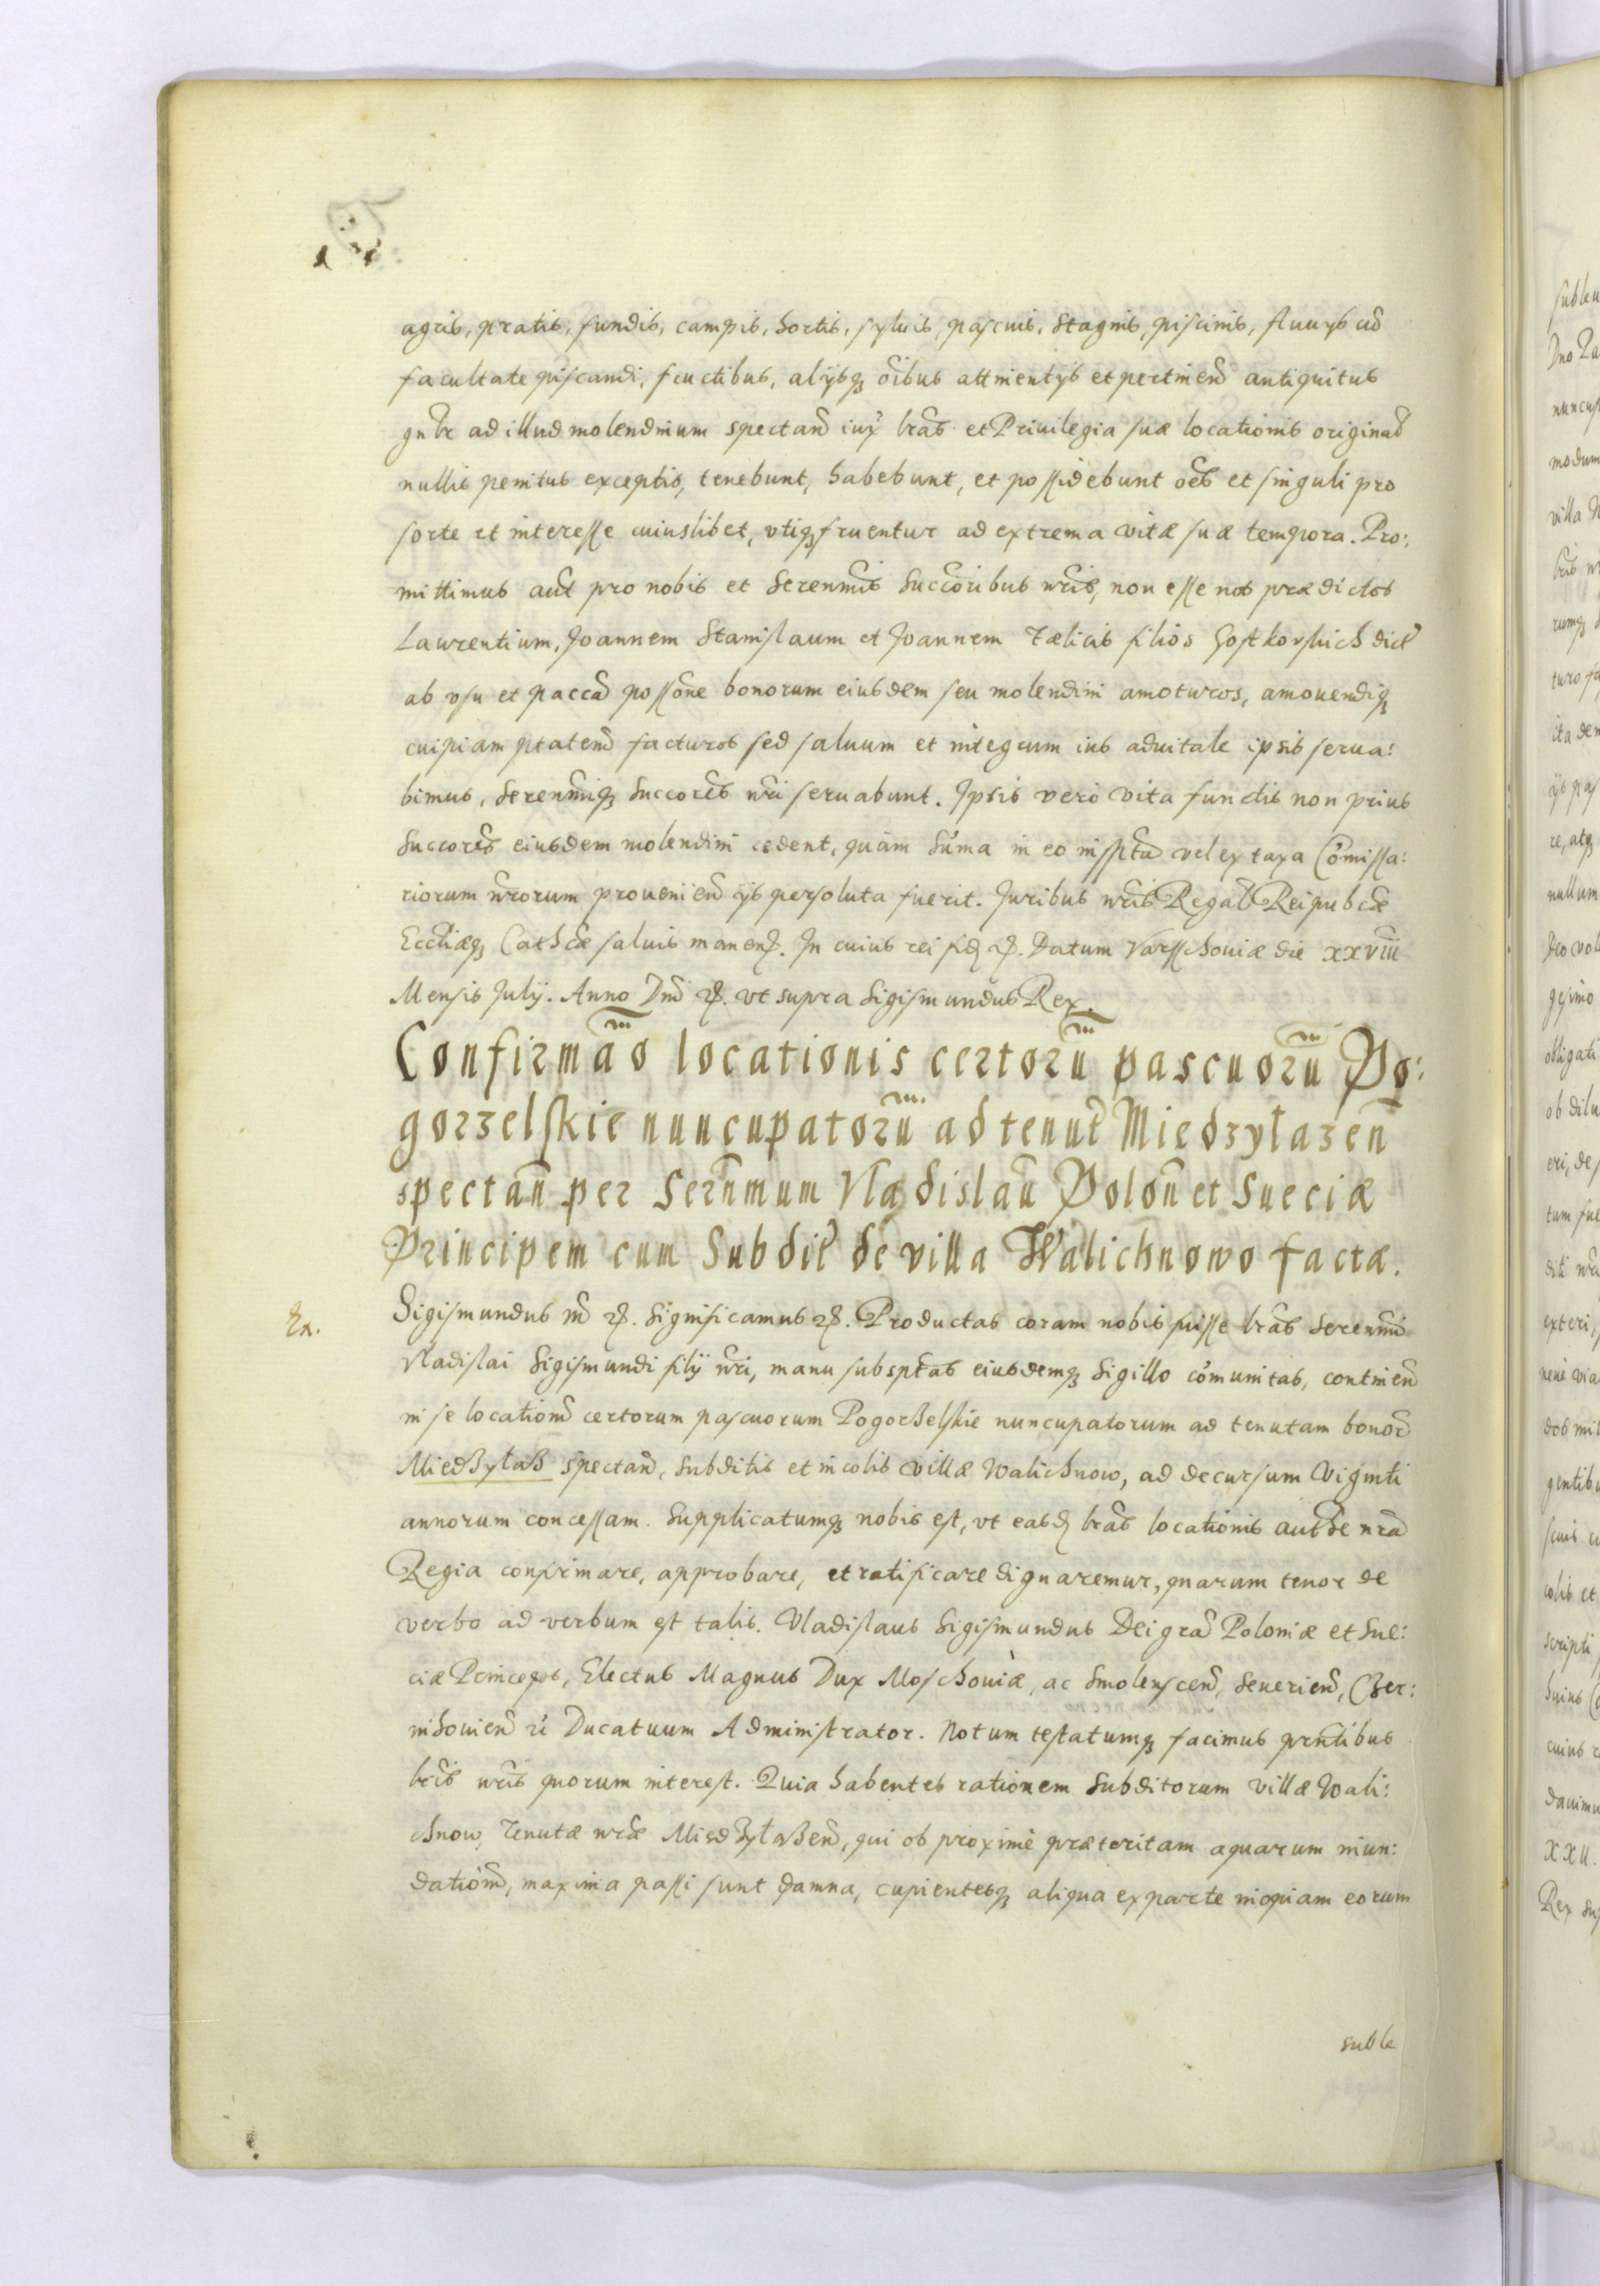 agris, pratis, fundis, campis, hortis, syluis, pascuis, stagnis, piscinis, fluuys cũ
facultate piscandi, fructibus, alysq; oĩbus attinentys et pertineñ antiquitus
gñlr ad illud molendinum spectañ iux̃ lrãs et Priuilegia suæ locationis originał
nullis penitus exceptis, tenebunt, habebunt, et possidebunt oẽs et singuli pro
sorte et interesse cuiuslibet, vtiq; fruentur ad extrema vitæ suæ tempora. Pro:
mittimus aũt pro nobis et Serenmĩs Succõribus nrĩs, non esse nos prædictos
Laurentium, Joannem Stanislaum et Joannem Fælicis filios Gostkowskich dict
ab vsu et paccã possõne bonorum eiusdem seu molendini amoturos, amouendiq;
cuipiam ptatem̃ facturos sed saluum et integrum ius aduitale ipsis serua:
bimus, Serenmĩq; Succorẽs nri seruabunt. Ipsis vero vita functis non prius
Succorẽs eiusdem molendini cedent, quàm Sum̃a in eo insptã vel ex taxa Com̃issa:
riorum nrorum prouenieñ ys persoluta fuerit. Juribus nrĩs Regał Reipubcæ
Eccliæq; Cathcæ saluis maneñ. In cuius rei fid; &. Datum Varschouiæ die XXVIII
Mensis July. Anno Dnĩ &. vt supra Sigismundus Rex.
Confirmão locationis certorũ pascuorũ Po:
gorzelskie nuncupatorũ ad tenut Miedzyłazeñ
spectañ per Serñmum Vladislaũ Poloñ et Sueciæ
Principem cum Subdił de villa Walichnowo factæ.
Ex.
Sigismundus III &. Significamus &. Productas coram nobis fuisse lrãs Serenmĩ
Vladislai Sigismundi fily nri, manu subsptas eiusdemq; Sigillo com̃unitas, continẽn
in se locatiom̃ certorum pascuorum Pogorzelskie nuncupatorum ad tenutam bonor̃
Miedzyłaz spectañ, subditis et incolis villæ Walichnow, ad decursum Viginti
annorum concessam. Supplicatumq; nobis est, vt easd; lrãs locationis autthe nrã
Regia confirmare, approbare, et ratificare dignaremur, quarum tenor de
verbo ad verbum est talis. Vladislaus Sigismundus Dei grã Poloniæ et Sue:
ciæ Princeps, Electus Magnus Dux Moschouiæ, ac Smolensceñ, Seuerieñ, Czer:
nihouieñ q́ Ducatuum Administrator. Notum testatumq; facimus prntibus
lrĩs nrĩs quorum interest. Quia habentes rationem Subditorum villæ Wali:
chnow, Tenutæ nræ Miedzyłazeñ, qui ob proxime præteritam aquarum inun:
datiom̃, maxima passi sunt damna, cupientesq; aliqua ex parte inopiam eorum
suble